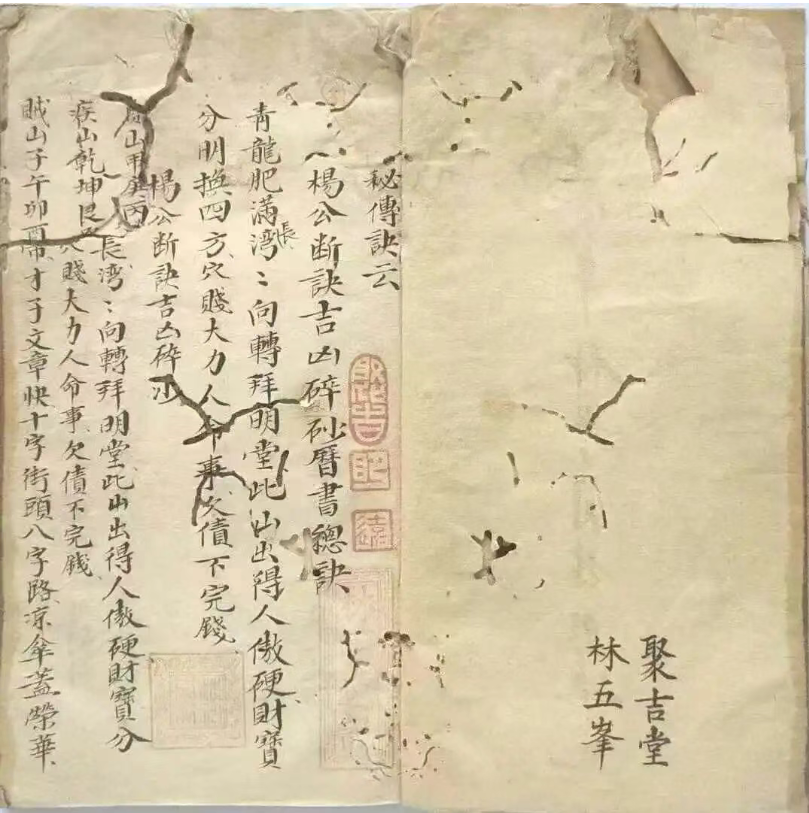 聚吉堂
林五峯
秘傳訣云
聚吉
遠
楊公断訣吉凶碎砂曆書總訣
青龍肥滿長湾〻向轉拜明堂此山出得人傲硬財寶
分明換四方穴賤大力人命事欠債不完錢
楊公断訣吉凶碎
山甲庚丙長湾〻向轉拜明堂此山出得人傲硬財寶分
疾山乾坤艮賤大力人命事欠債不完錢
賊山子午卯酉才子文章快十字街頭八字路凉傘蓋榮華